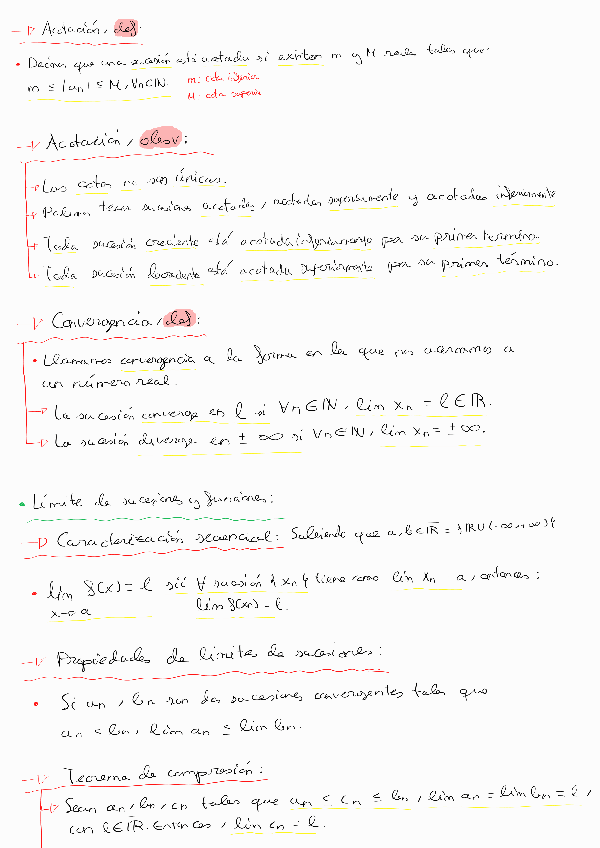 Acotación, def:
Decimos que una sucesión está acotada si existen m y M reales tales que:
m ≤ |an| ≤ M, ∀n∈ℕ
m: cota inferior
M: cota superior
Acotación, obsv:
Las cotas no son únicas.
Podemos tener sucesiones acotadas, acotadas superiormente y acotadas inferiormente
Toda sucesión creciente está acotada inferiormente por su primer término.
Toda sucesión decreciente está acotada superiormente por su primer término.
Convergencia, def:
Llamamos convergencia a la forma en la que nos acercamos a
un número real.
La sucesión converge en l si ∀n∈ℕ, lim xn = l∈ℝ.
La sucesión diverge en ±∞ si ∀n∈ℕ, lim xn = ±∞.
Límite de sucesiones y funciones:
Caracterización secuencial: Sabiendo que a, l∈ℝ̅ = {ℝ∪(-∞,+∞)}
lim f(x) = l sii ∀ sucesión {xn} tiene como lim xn a, entonces:
x→a lim f(xn) = l.
Propiedades de límites de sucesiones:
Si an, bn son dos sucesiones convergentes tales que
an ≤ bn, lim an ≤ lim bn.
Teorema de compresión:
Sean an, bn, cn tales que an ≤ cn ≤ bn, lim an = lim bn = l,
con l∈ℝ̅. Entonces, lim cn = l.